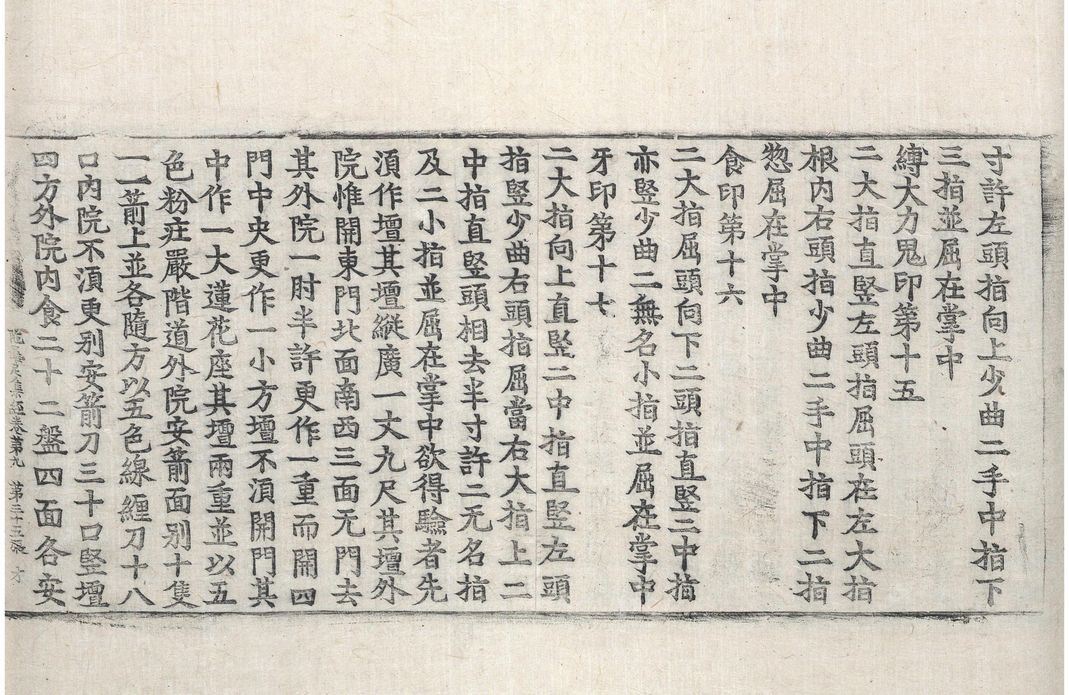 寸許左頭指向上少曲二手中指下
三指並屈在掌中
縛大力鬼印第十五
二大指直竪左頭指屈頭在左大指
根內右頭指少曲二手中指下二指
惣屈在掌中
食印第十六
二大指屈頭向下二頭指直竪二中指
亦竪少曲二無名小指並屈在掌中
牙印第十七
二大指向上直竪二中指直竪左頭
指竪少曲右頭指屈當右大指上二
中指直竪頭相去半寸許二无名指
及二小指並屈在掌中欲得驗者先
湏作壇其壇縱廣一丈九尺其壇外
院惟開東門北面南西三面无門去
其外院一肘半許更作一重而開四
門中央更作一小方壇不湏開門其
中作一大蓮花座其壇兩重並以五
色粉莊嚴階道外院安箭面別十隻
一一箭上並各隨方以五色線纏刀十八
口內院不湏更別安箭刀三十口竪壇
四方外院內食二十二盤四面各安
陁羅尼集經卷第九 第三十三張 才